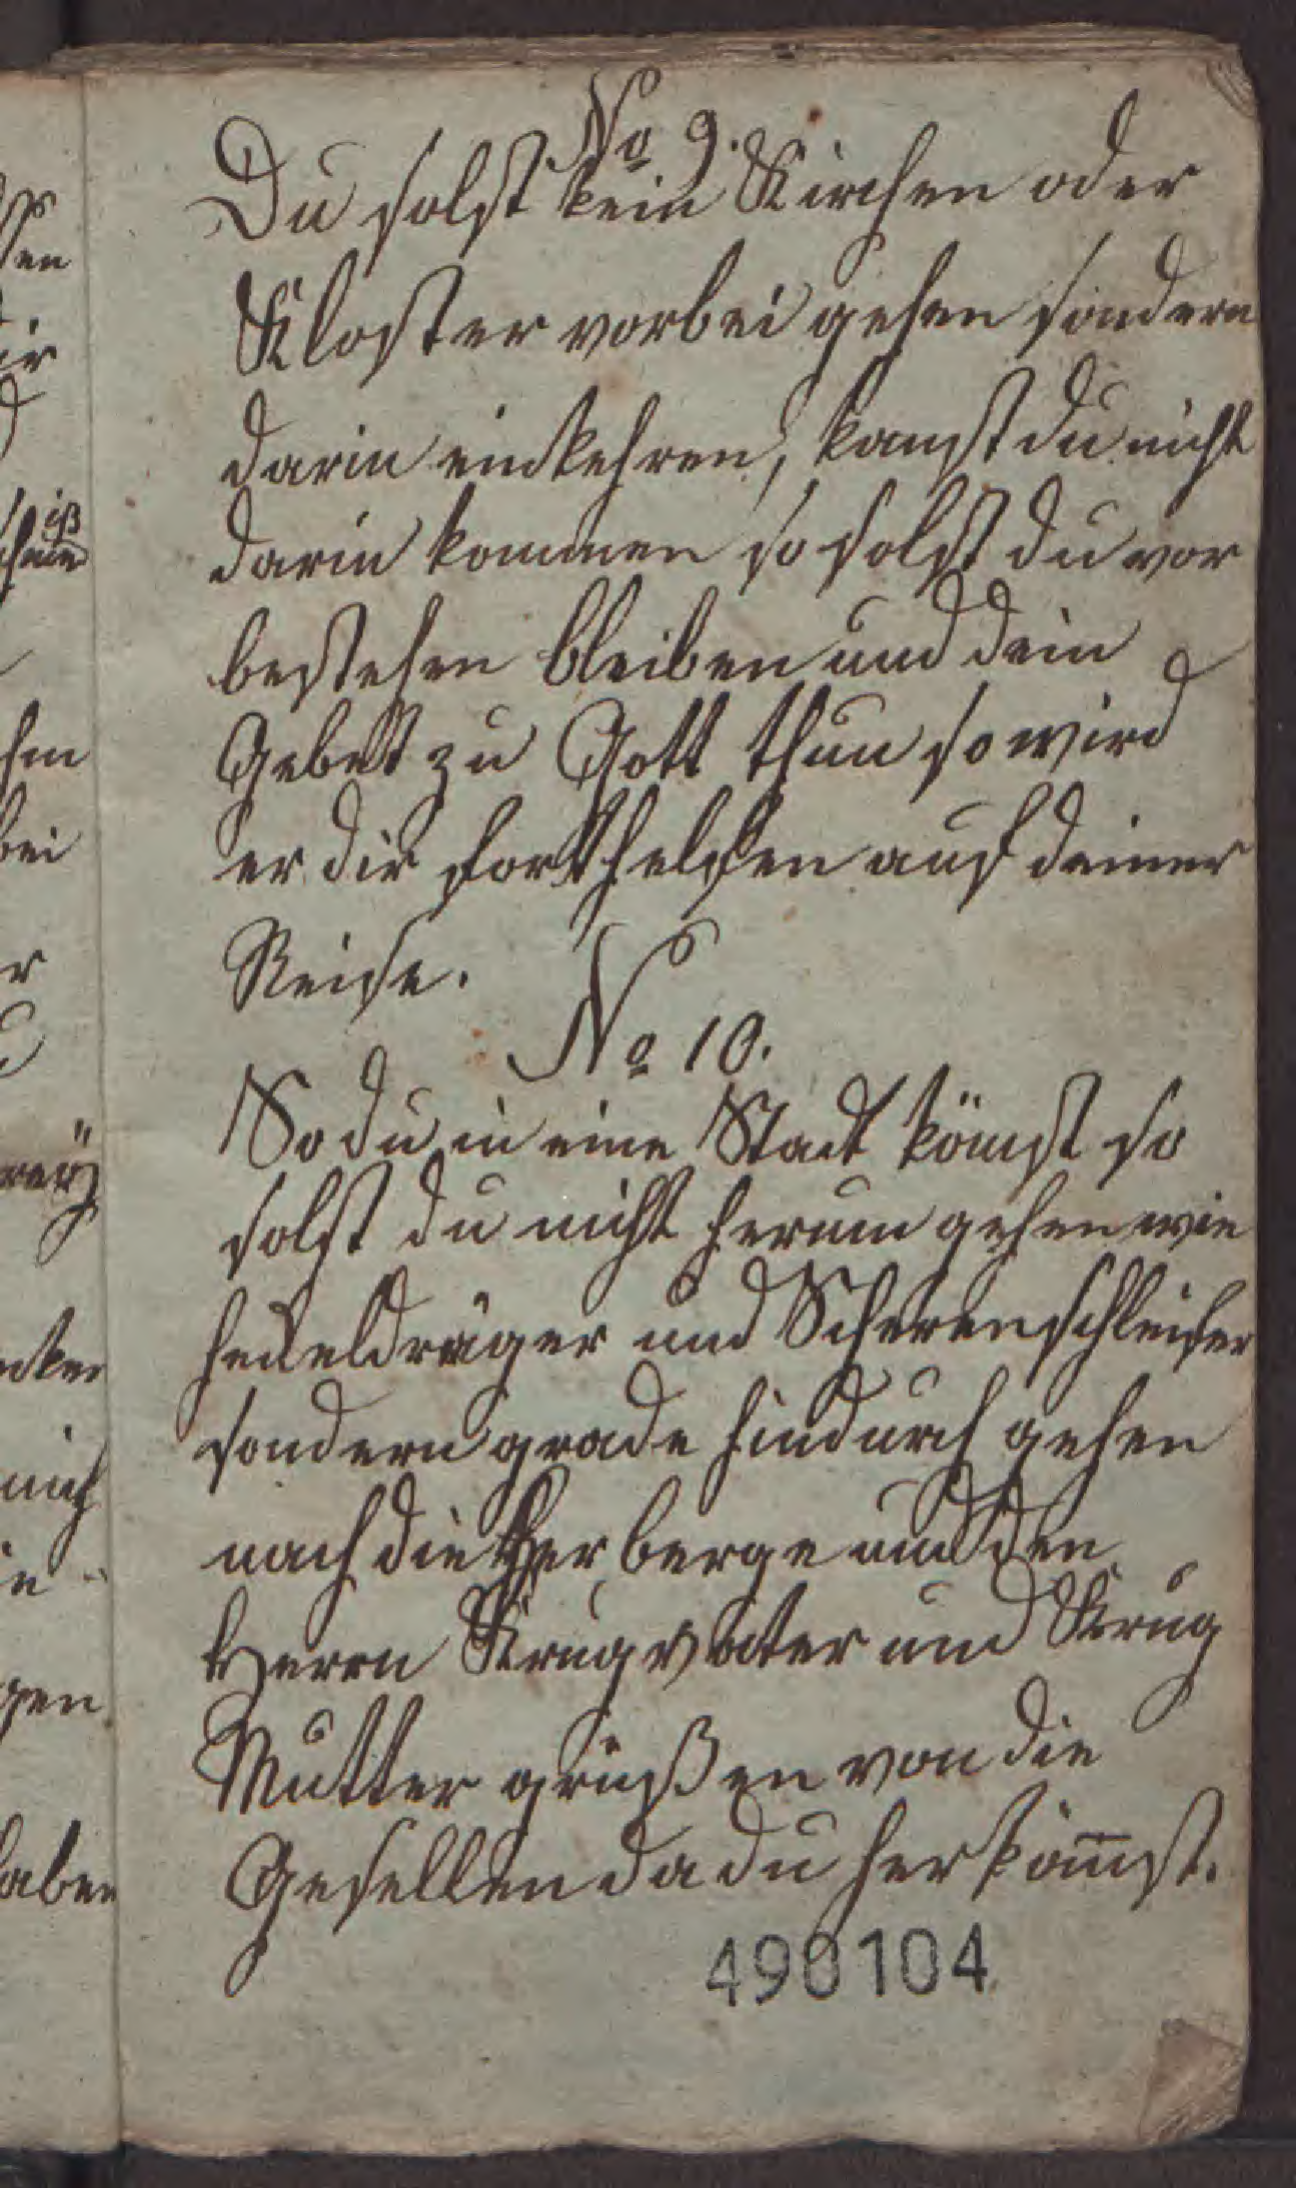 No 9.
Du solst kein Kirchen oder
Kloster vorbei gehen sondern
darin einkehren, kanst du nicht
darin kommen so solst du vor
bestehen bleiben und dein
Gebett zu Gott thun so wird
er dir forthelfen auf deiner
Reise.
No 10.
So du in eine Stadt kömst so
solst du nicht herum gehen wie
hedeldräger und Scherenschleifer
sondern grade hindurch gehen
nach die Herberge und den
Herrn Krugvater und Krug
Mutter grüßen von die
Gesellen da du her kömst.
490104